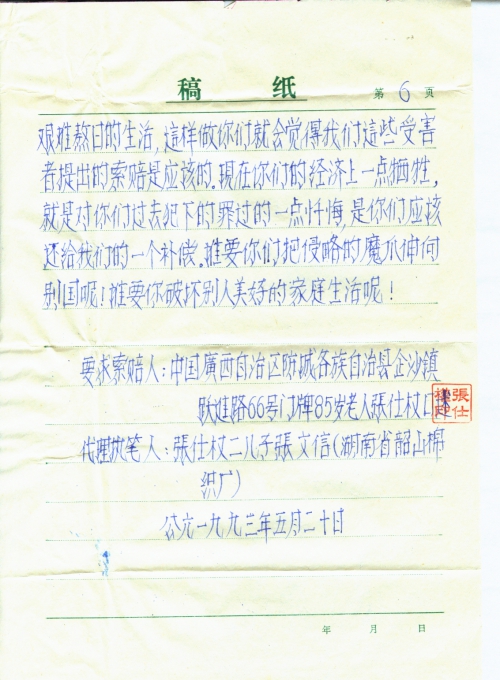 稿 纸
第 6 页
艰难熬日的生活,這样做你们就会觉得我们這些受害
者提出的索赔是应该的.現在你们的经济上一点牺牲,
就是对你们过去犯下的罪过的一点忏悔,是你们应该
还给我们的一个补偿.誰要你们把侵略的魔爪伸向
别国呢!誰要你破坏别人美好的家庭生活呢!
要求索赔人:中国廣西自治区防城各族自治县企沙镇
跃進路66号门牌85岁老人張仕杖口述
代理执笔人:張仕杖二儿子張文信(湖南省韶山棉
织厂)
公元一九九三年五月二十日
張仕
年 月 日